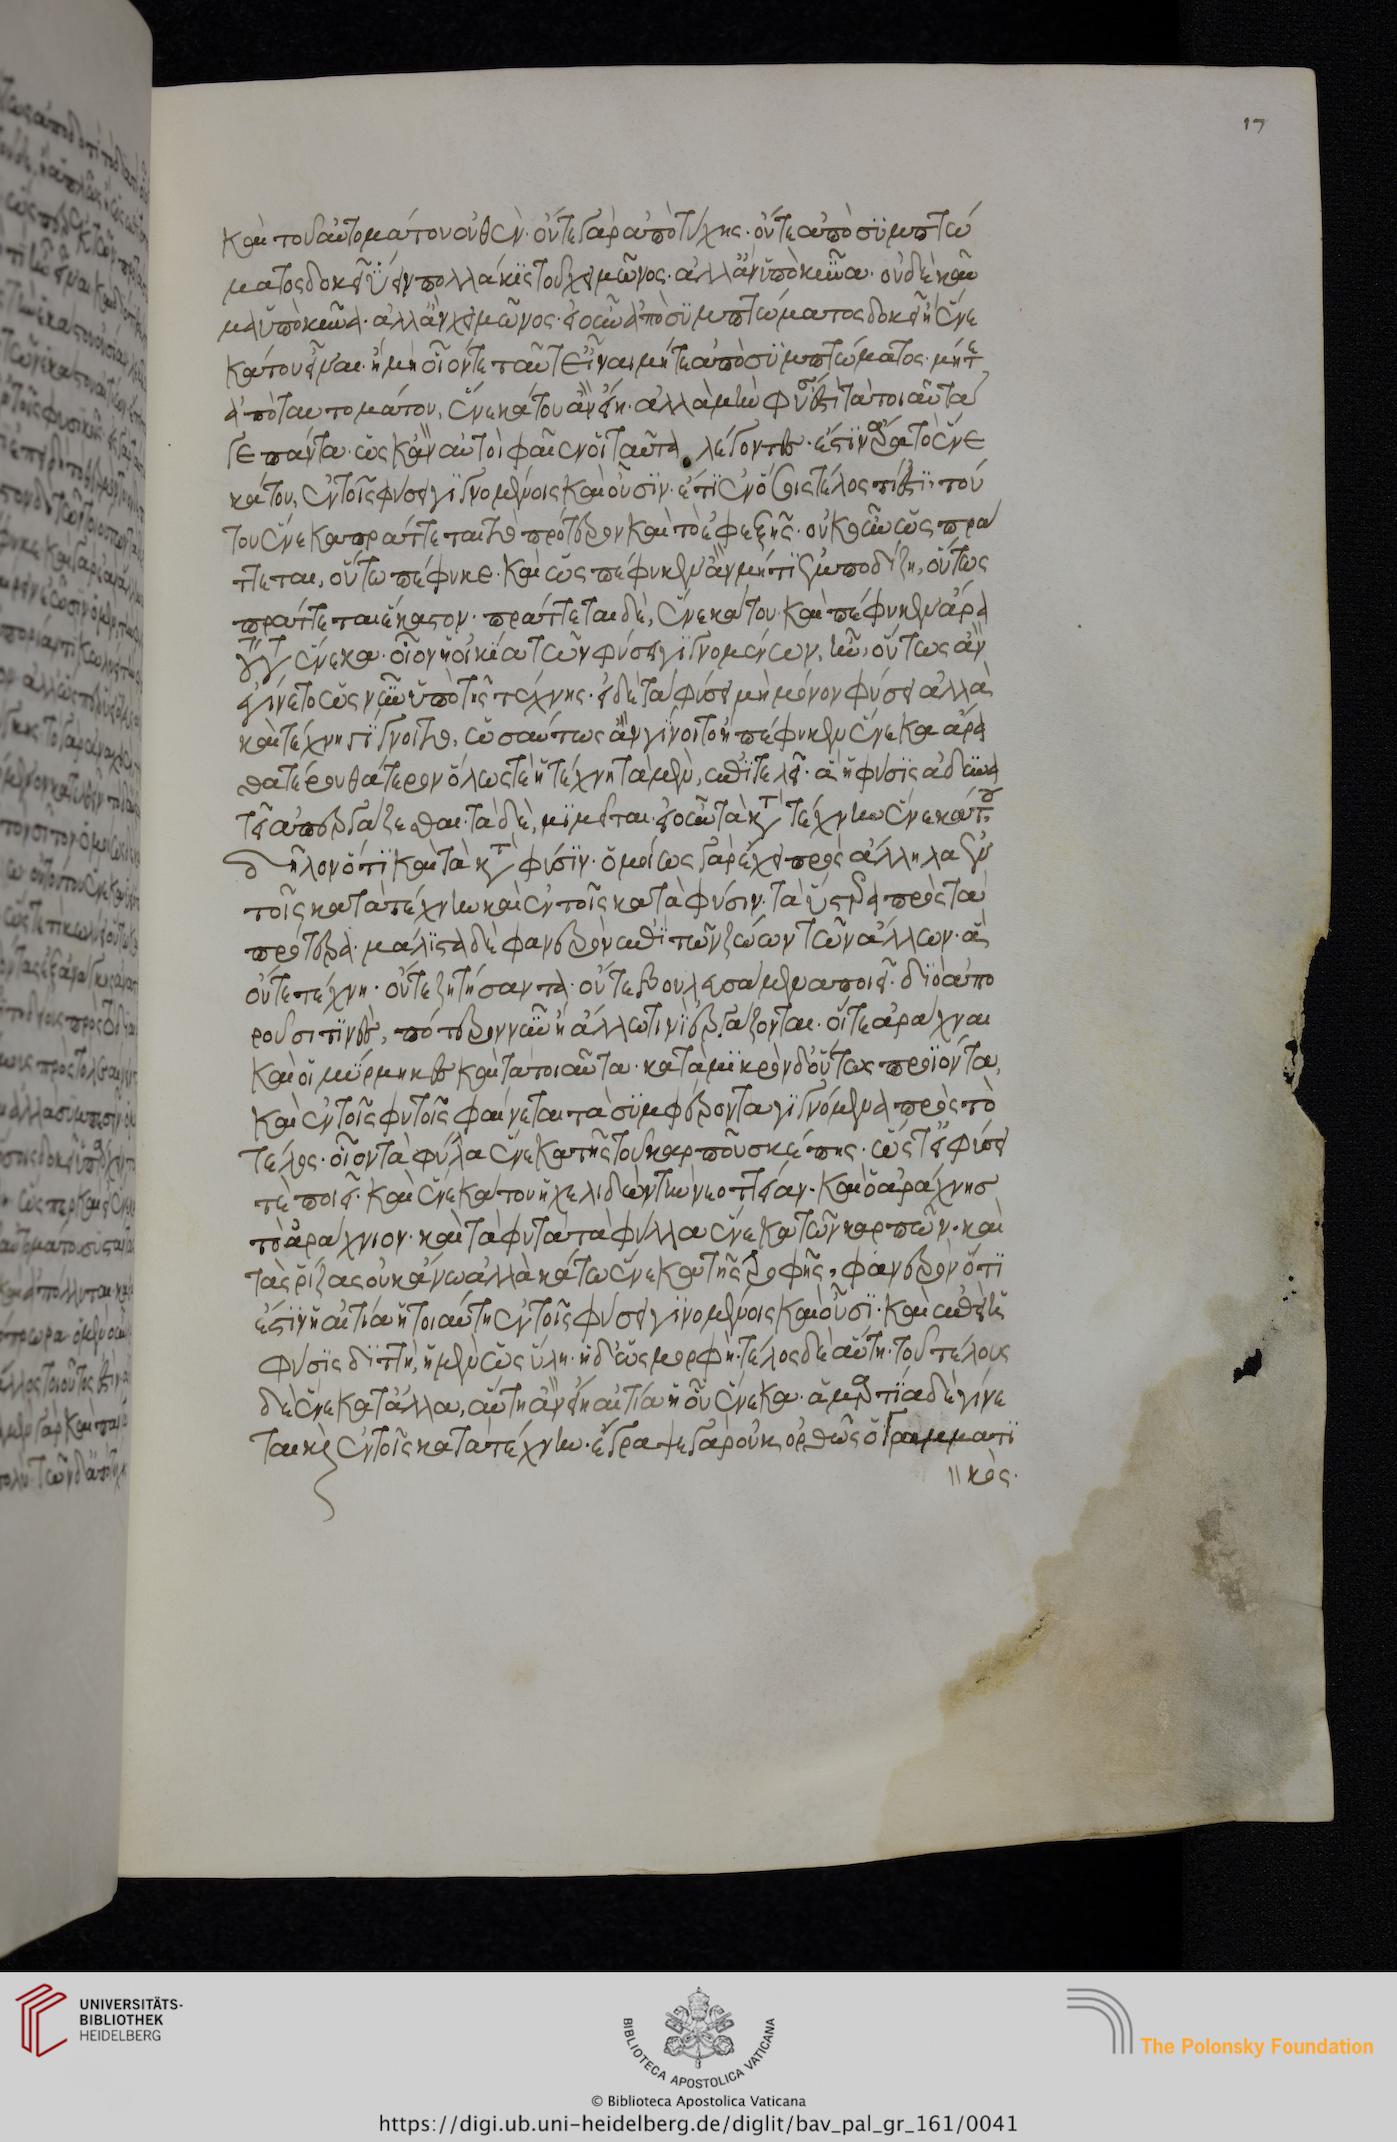 17
καὶ τοῦ αὐτομάτου οὐθέν· οὔτε γὰρ ἀπὸ τύχης· οὔτε ἀπὸ συμπτώ
ματος δοκεῖ ὕειν πολλάκις τοῦ χειμῶνος· ἀλλ' ἂν ὑπὸ κύνα· οὐδὲ καῦ
μα ὑπὸ κύνα· ἀλλ' ἂν χειμῶνος· εἰ οὖν ἀπὸ συμπτώματος δοκεῖ ἢ ἕνε
κά του εἶναι· εἰ μὴ οἷόν τε ταῦτ' εἶναι μήτε ἀπὸ συμπτώματος· μήτε
ἀπὸ ταυτομάτου, ἕνεκά του ἂν εἴη· ἀλλὰ μὴν φύσει ἐστὶ τὰ τοιαῦτά
γε πάντα· ὡς κἂν αὐτοὶ φαῖεν οἱ ταῦτα λέγοντες· ἔστιν ἄρα τὸ ἕνε
κά του, ἐν τοῖς φύσει γιγνομένοις καὶ οὖσιν· ἔτι ἐν ὅσοις τέλος τί ἐστι, τού
του ἕνεκα πράττεται τὸ πρότερον καὶ τὸ ἐφεξῆς· οὐκοῦν ὡς πρά
ττεται, οὕτω πέφυκε· καὶ ὡς πέφυκεν ἂν μή τι ἐμποδίζῃ, οὕτως
πράττεται ἕκαστον· πράττεται δὲ, ἕνεκά του· καὶ πέφυκεν ἄρα
ἕνεκα· οἷον εἰ οἰκία τῶν φύσει γιγνομένων, ἦν, οὕτως ἂν
ἐγίνετο ὡς νῦν ὑπὸ τῆς τέχνης· εἰ δὲ τὰ φύσει μὴ μόνον φύσει ἀλλὰ
καὶ τέχνῃ γίγνοιτο, ὡσαύτως ἂν γίνοιτο ᾗ πέφυκεν· ἕνεκα ἄρα
θατέρου θάτερον ὅλως τε ἡ τέχνη τὰ μὲν, ἐπιτελεῖ· ἃ ἡ φύσις ἀδυνα
τεῖ ἀπεργάζεσθαι· τὰ δὲ, μιμεῖται· εἰ οὖν τὰ κατὰ τέχνην ἕνεκά του
δῆλον ὅτι καὶ τὰ κατὰ φύσιν· ὁμοίως γὰρ ἔχει πρὸς ἄλληλα ἐν
τοῖς κατὰ τέχνην καὶ ἐν τοῖς κατὰ φύσιν· τὰ ὕστερα πρὸς τὰ
πρότερα· μάλιστα δὲ φανερὸν ἐπὶ τῶν ζώων τῶν ἄλλων· ἃ
οὔτε τέχνῃ· οὔτε ζητήσαντα· οὔτε βουλευσάμενα ποιεῖ· διὸ ἀπο
ροῦσί τινες, πότερον νῷ ἢ ἄλλῳ τινὶ ἐργάζονται· οἵ τε ἀράχναι
καὶ οἱ μύρμηκες καὶ τὰ τοιαῦτα· κατὰ μικρὸν δ' οὕτως προϊόντα,
καὶ ἐν τοῖς φυτοῖς φαίνεται τὰ συμφέροντα γιγνόμενα πρὸς τὸ
τέλος· οἷον τὰ φύλλα ἕνεκα τῆς τοῦ καρποῦ σκέπης· ὥστ' εἰ φύσει
τὲ ποιεῖ· καὶ ἕνεκά του ἡ χελιδὼν τὴν νεοττείαν· καὶ ὁ ἀράχνης
τὸ ἀράχνιον· καὶ τὰ φυτὰ τὰ φύλλα ἕνεκα τῶν καρπῶν· καὶ
τὰς ῥίζας οὐκ ἄνω ἀλλὰ κάτω ἕνεκα τῆς τροφῆς, φανερὸν ὅτι
ἐστὶν ἡ αἰτία ἡ τοιαύτη ἐν τοῖς φύσει γινομένοις καὶ οὖσι· καὶ ἐπεὶ ἡ
φύσις διττὴ, ἡ μὲν ὡς ὕλη· ἡ δ' ὡς μορφὴ· τέλος δὲ αὕτη· τοῦ τέλους
δὲ ἕνεκα τἄλλα, αὕτη ἂν εἴη αἰτία ἡ οὗ ἕνεκα· ἁμαρτία δὲ γίνε
ται καὶ ἐν τοῖς κατὰ τέχνην· ἔγραψε γὰρ οὐκ ὀρθῶς ὁ γραμματι
κὸς·
UNIVERSITÄTS-
BIBLIOTHEK
HEIDELBERG
BIBLIOTECA APOSTOLICA VATICANA
The Polonsky Foundation
© Biblioteca Apostolica Vaticana
https://digi.ub.uni-heidelberg.de/diglit/bav_pal_gr_161/0041